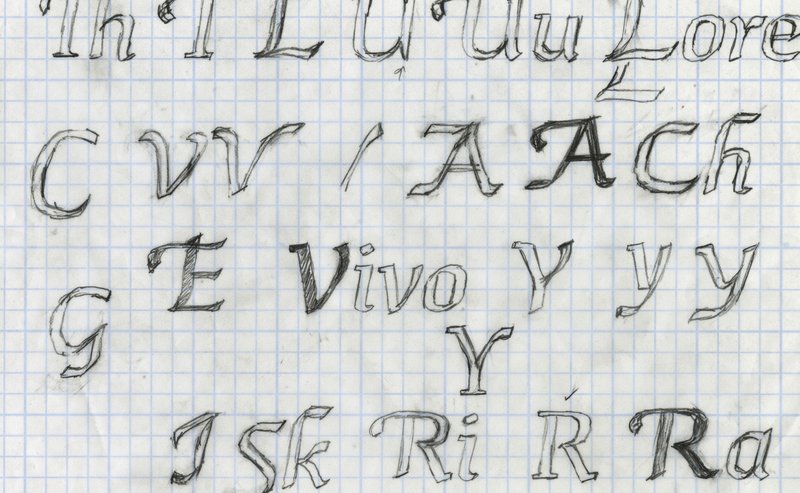 Th T L U Uu Lore
L
C V V / A A Ch
E Vivo Y y y
G
Y
I Sk Ri Ŕ Ra